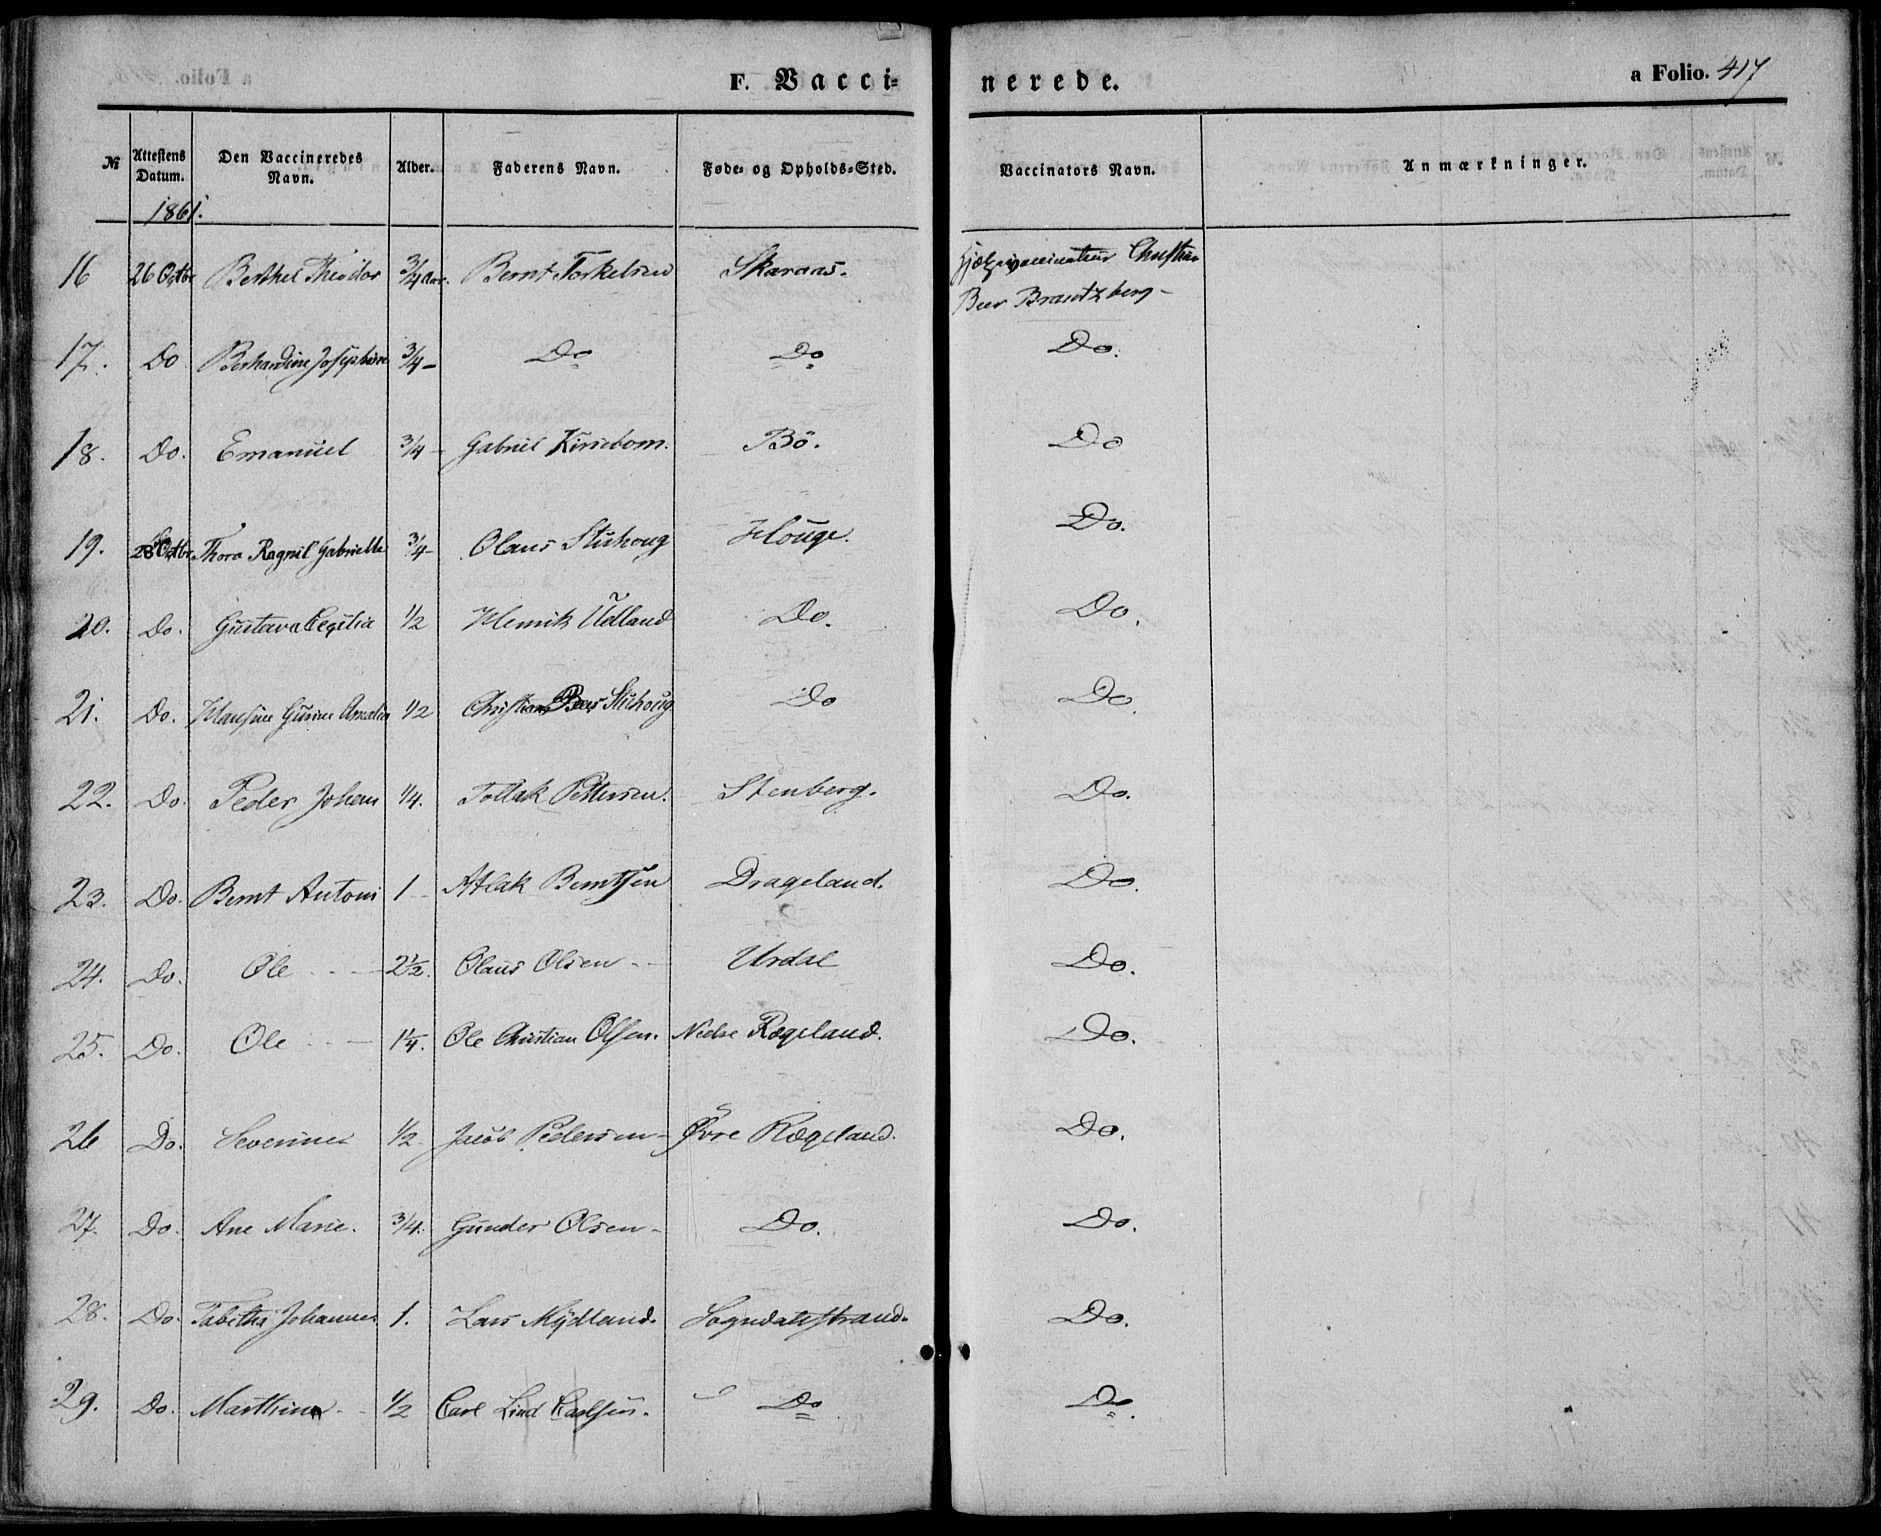 F. Vacci= nerede. a Folio. 417
№ Attestens Datum. Den Vaccineredes Navn. Alder. Faderens Navn. Føde= og Opholds=Sted. Vaccinators Navn. Anmærkninger.
1861.
16 26 Octbr Berthel Theodor 3/4 Aar. Bernt Torkelsen Skaraas. Hjælpevaccinateur Christian
Beer Brantzberg
17. Do Bernandine Josephine 3/4 – Do Do Do.
18. Do. Emanuel 3/4 – Gabriel Kirsebom. Bö. Do
19. 28 Octbr Thora Ragnil Gabrielle 3/4 – Olaus Stuhoug Houge. Do.
20. Do. Gustava Cecilia 1/2 Henrik Udland Do. Do.
21. Do. Hansine Gurine Amalia 1/2 Christian Beer Stuhoug Do Do.
22. Do. Peder Johan 1/4. Tollak Pettersen. Stenberg. Do.
23. Do. Bernt Antoni 1 – Atlak Berntsen Drageland. Do.
24. Do. Ole – 2½. Olaus Olsen – Urdal Do.
25. Do. Ole – 1¼. Ole Christian Olsen. Nedre Rægeland. Do.
26 Do. Severine 1/2. Jacob Pedersen – Øvre Rægeland. Do.
27. Do. Ane Marie. 3/4. Gunder Olsen – Do. Do.
28. Do. Tabitha Johannes 1. Lars Mydland. Sogndalsstrand. Do.
29. Do. Marthine – 1/2 Carl Lind Carlsen. Do Do.